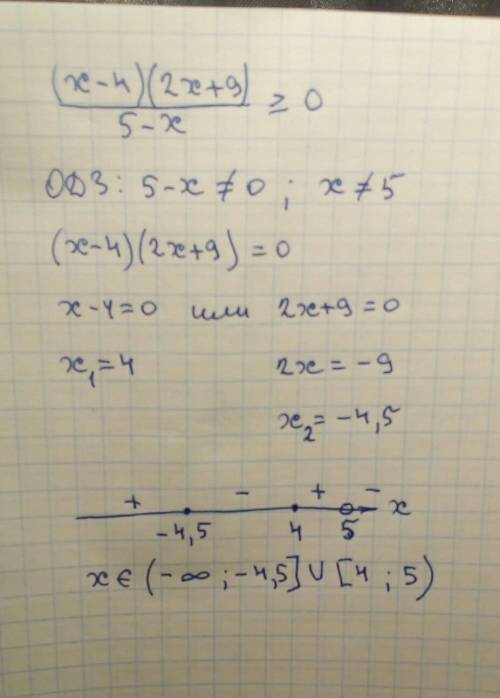 (x-4)(2x+9)/(5-x) ≥ 0
ОДЗ: 5-x≠0 ; x≠5
(x-4)(2x+9)=0
x-4=0 или 2x+9=0
x₁=4 2x=-9
x₂=-4,5
+ - + - x
-4,5 4 5
x∈(-∞;-4,5]∪[4;5)